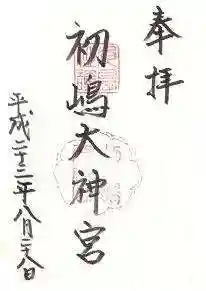 奉拝
初嶋大神宮
平成二十二年八月二十八日